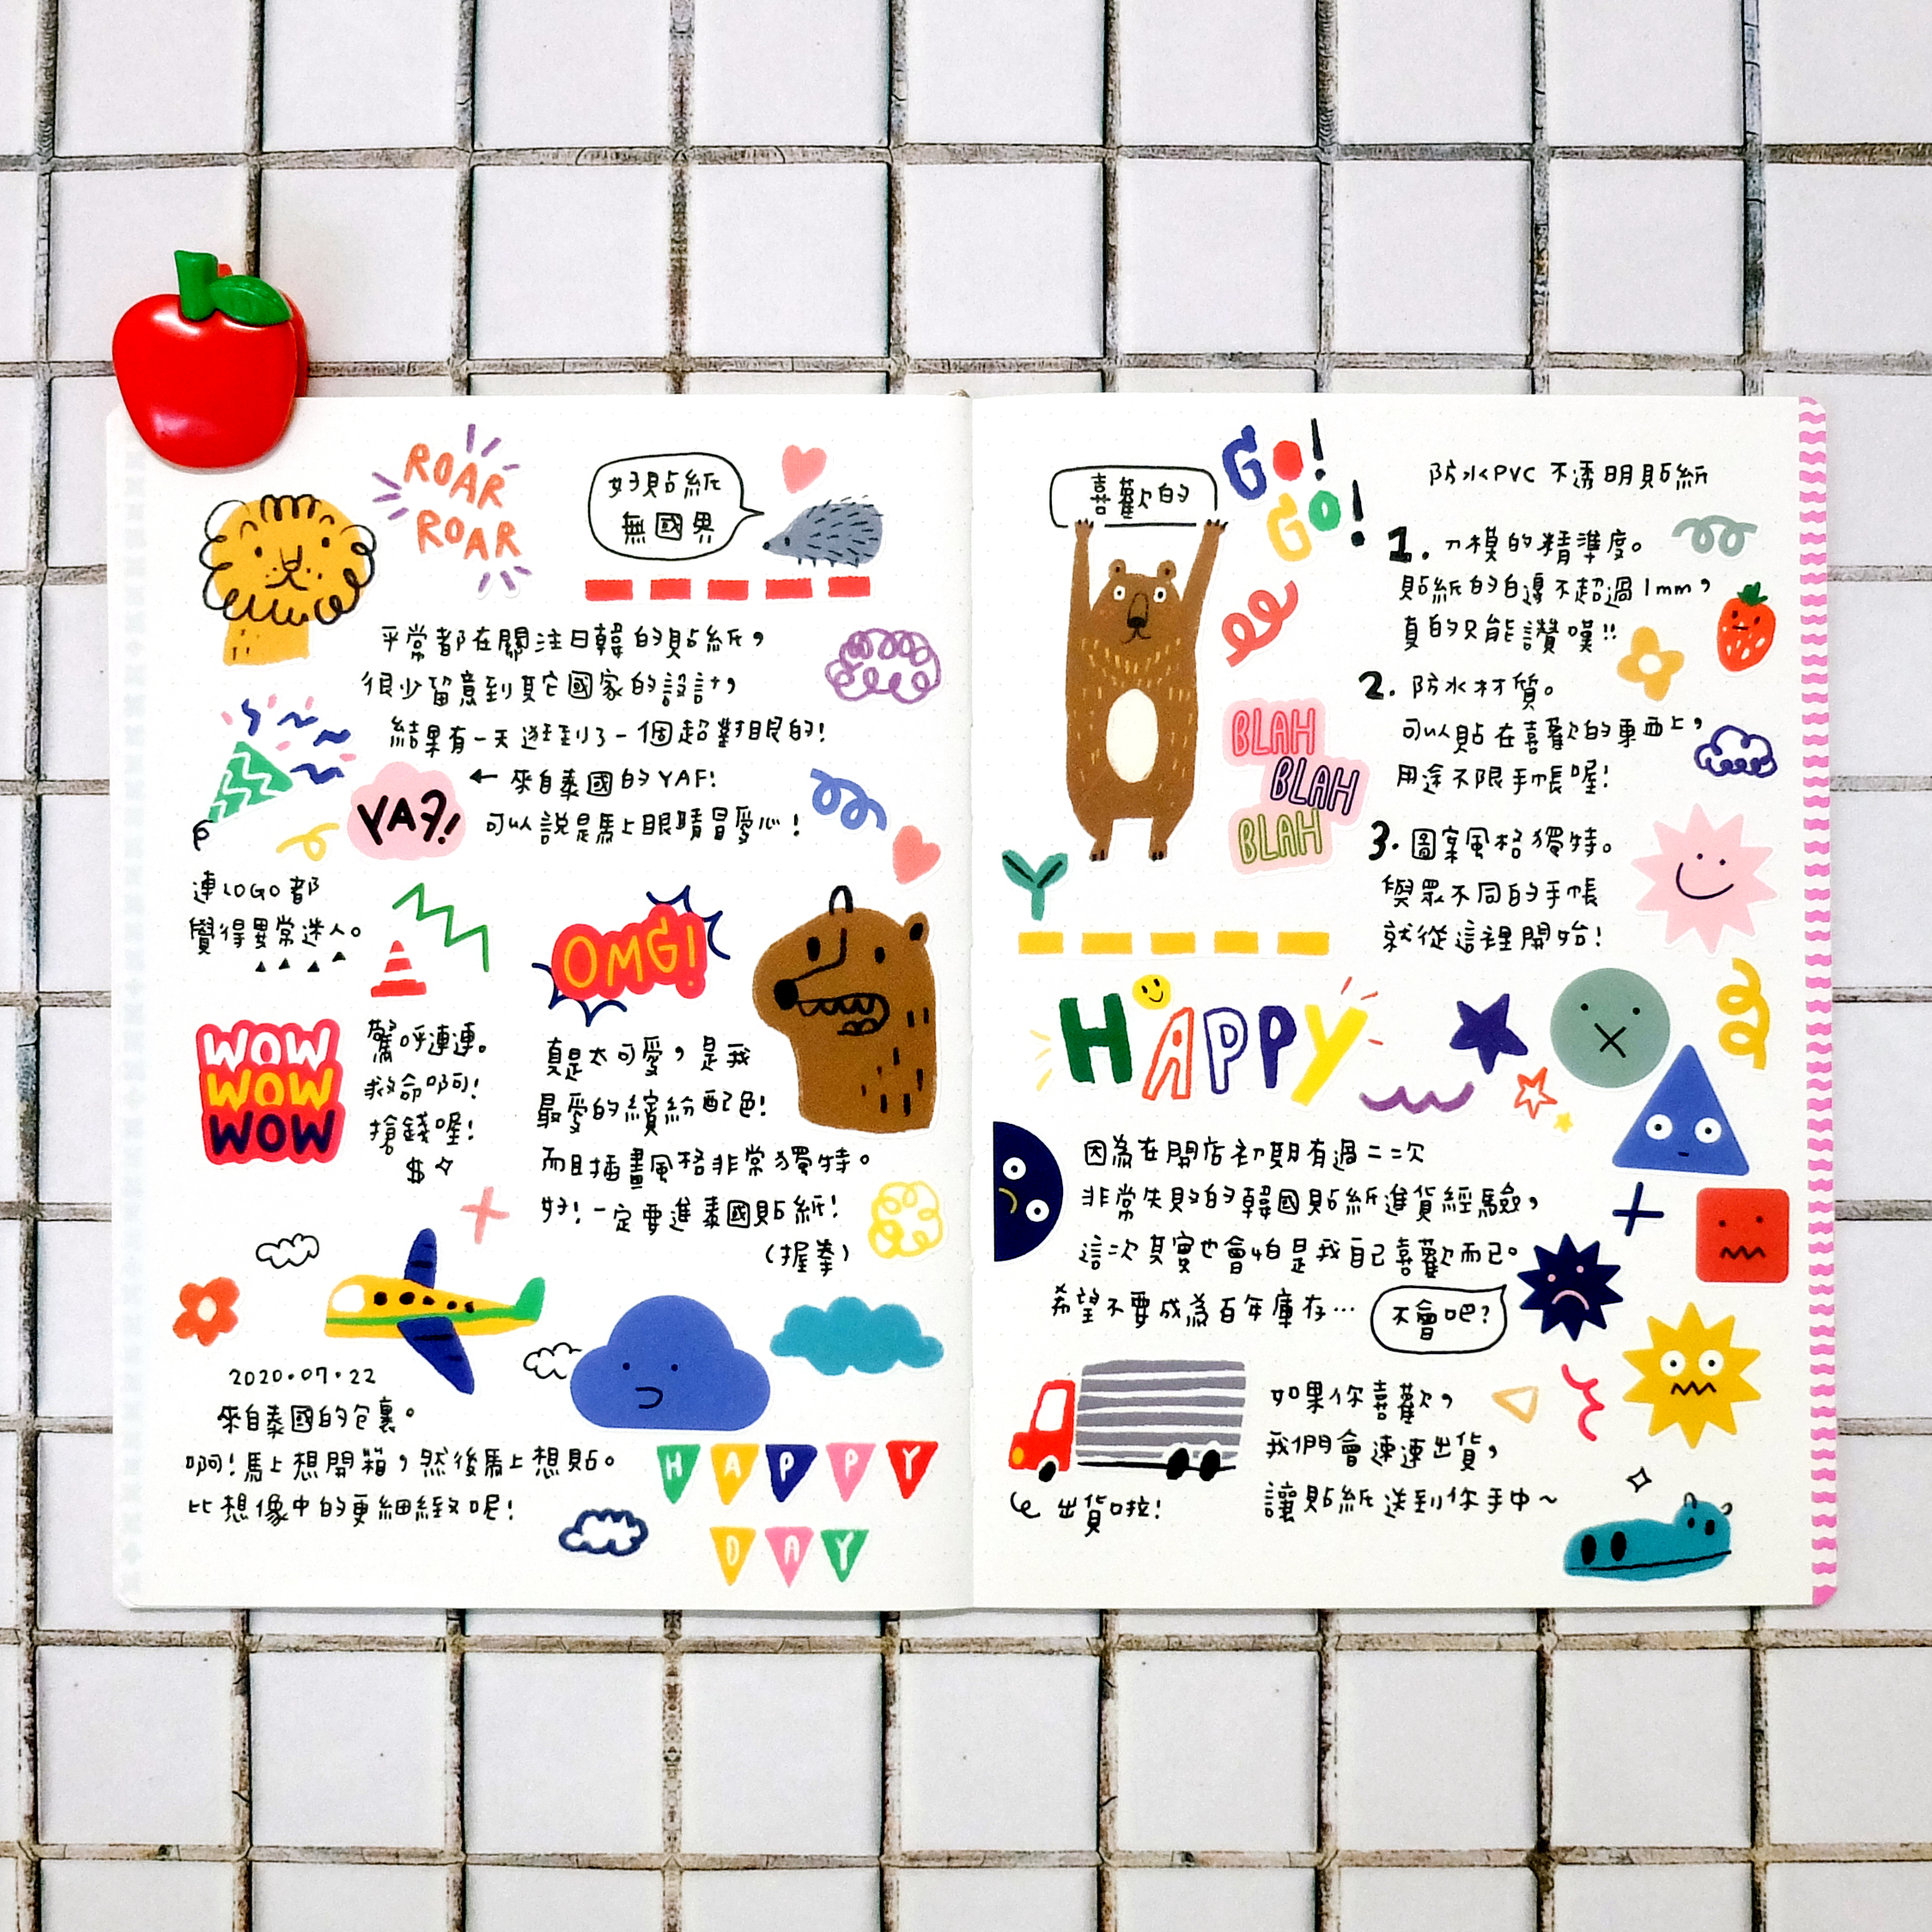 ROAR
ROAR
好貼紙
無國界
平常都在關注日韓的貼紙,
很少留意到其它國家的設計,
結果有一天逛到了一個超對眼的!
← 來自泰國的YAF!
YAF!
可以說是馬上眼睛冒愛心!
連LOGO都
覺得異常迷人。
OMG!
WOW
WOW
WOW
驚呼連連。
救命啊!
搶錢喔!
$
真是太可愛,是我
最愛的繽紛配色!
而且插畫風格非常獨特。
好!一定要進泰國貼紙!
(握拳)
2020.07.22
來自泰國的包裹。
啊!馬上想開箱,然後馬上想貼。
比想像中的更細緻呢!
HAPPY
DAY
喜歡的
GO!
GO!
BLAH
BLAH
BLAH
防水PVC 不透明貼紙
1. 刀模的精準度。
貼紙的白邊不超過1mm,
真的只能讚嘆!!
2. 防水材質。
可以貼在喜歡的東西上,
用途不限手帳喔!
3. 圖案風格獨特。
與眾不同的手帳
就從這裡開始!
HAPPY
因為在開店初期有過一二次
非常失敗的韓國貼紙進貨經驗,
這次其實也會怕是我自己喜歡而已。
希望不要成為百年庫存…
不會吧?
如果你喜歡,
我們會速速出貨,
讓貼紙送到你手中~
出貨啦!